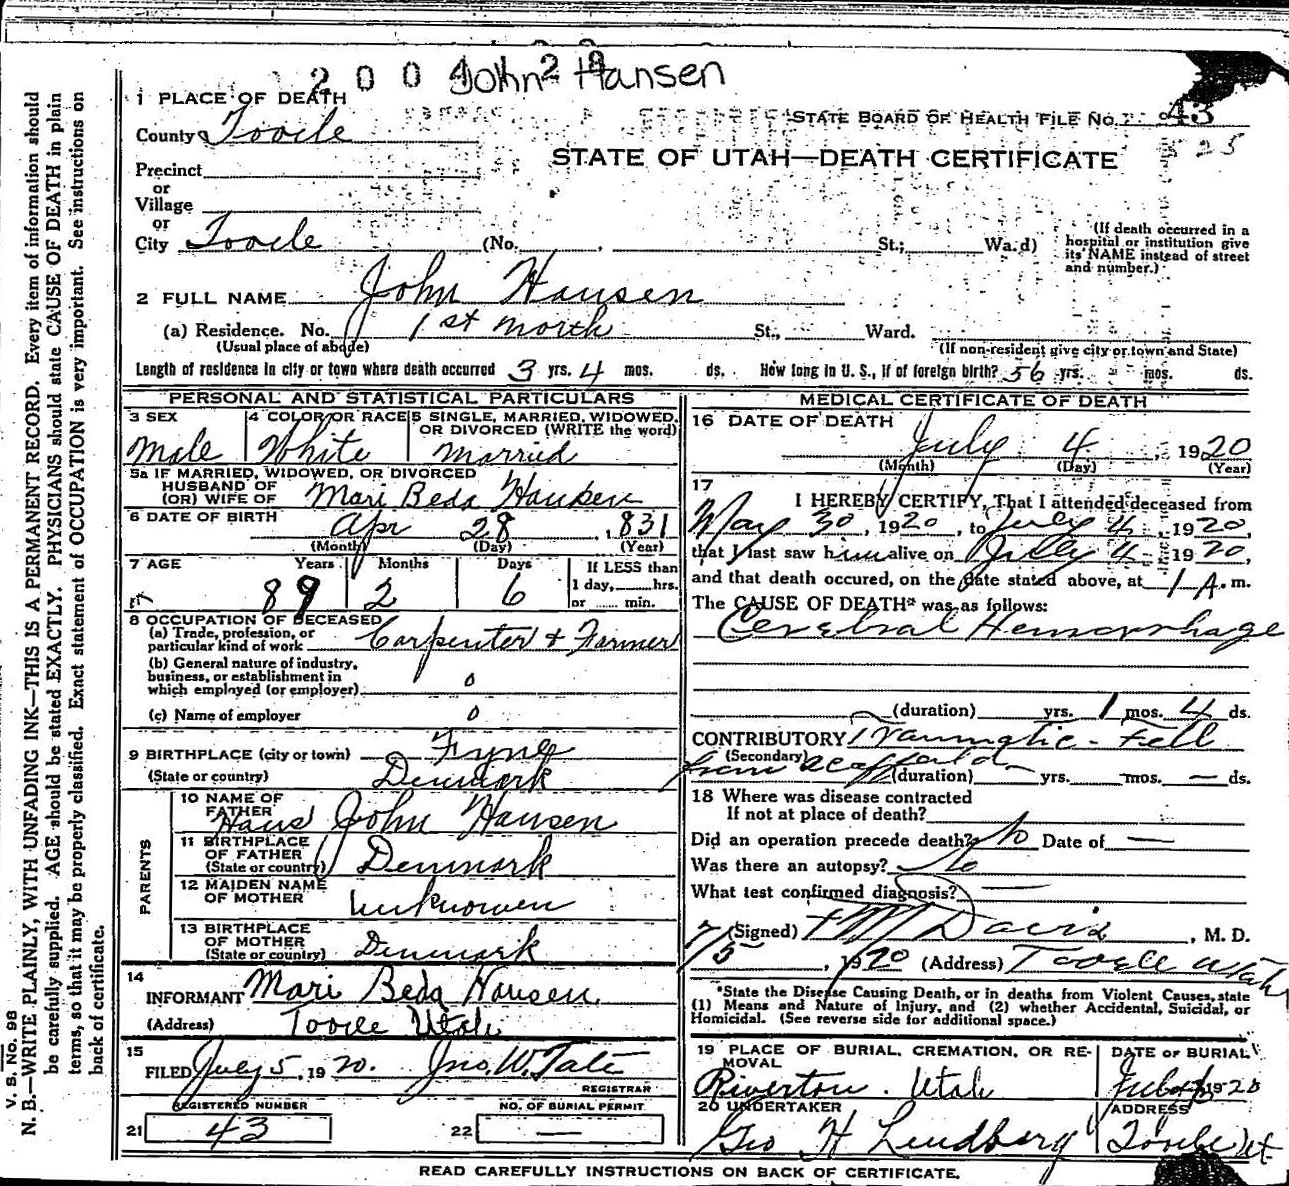 John Hansen
1 PLACE OF DEATH
STATE BOARD OF HEALTH FILE No. 43
County Tooele
525
STATE OF UTAH—DEATH CERTIFICATE
Precinct
or
Village
or
City Tooele (No. , St.; Wa.d)
(If death occurred in a hospital or institution give its NAME instead of street and number.)
2 FULL NAME John Hansen
(a) Residence. No. 1st north St., Ward.
(Usual place of abode) (If non-resident give city or town and State)
Length of residence in city or town where death occurred 3 yrs. 4 mos. ds. How long in U. S., if of foreign birth? 56 yrs. - mos. ds.
PERSONAL AND STATISTICAL PARTICULARS
3 SEX 4 COLOR OR RACE 5 SINGLE, MARRIED, WIDOWED, OR DIVORCED (WRITE the word)
Male White Married
5a IF MARRIED, WIDOWED, OR DIVORCED
HUSBAND OF
(OR) WIFE OF Mari Beda Hansen
6 DATE OF BIRTH Apr 28, 1831
(Month) (Day) (Year)
7 AGE Years Months Days If LESS than 1 day, hrs. or min.
89 2 6
8 OCCUPATION OF DECEASED
(a) Trade, profession, or particular kind of work Carpenter & Farmer
(b) General nature of industry, business, or establishment in which employed (or employer) o
(c) Name of employer o
9 BIRTHPLACE (city or town) Fyne
(State or country) Denmark
PARENTS
10 NAME OF FATHER Hans John Hansen
11 BIRTHPLACE OF FATHER (State or country) Denmark
12 MAIDEN NAME OF MOTHER Unknowen
13 BIRTHPLACE OF MOTHER (State or country) Denmark
14
INFORMANT Mari Beda Hansen
(Address) Tooele Utah
15
FILED July 5, 1920. Jno. W. Tate
REGISTRAR
REGISTERED NUMBER NO. OF BURIAL PERMIT
21 43 22 —
MEDICAL CERTIFICATE OF DEATH
16 DATE OF DEATH
July 4, 1920
(Month) (Day) (Year)
17
I HEREBY CERTIFY, That I attended deceased from
May 30, 1920, to July 4, 1920,
that I last saw him alive on July 4 1920,
and that death occured, on the date stated above, at 1 A. m.
The CAUSE OF DEATH* was as follows:
Cerebral Hemorrhage
(duration) yrs. 1 mos. 4 ds.
CONTRIBUTORY Traumatic - Fell
(Secondary) from scaffold
(duration) — yrs. — mos. — ds.
18 Where was disease contracted
If not at place of death?
Did an operation precede death? No Date of —
Was there an autopsy? No
What test confirmed diagnosis? —
(Signed) M Davis, M. D.
7/5, 1920 (Address) Tooele Utah
*State the Disease Causing Death, or in deaths from Violent Causes, state (1) Means and Nature of Injury, and (2) whether Accidental, Suicidal, or Homicidal. (See reverse side for additional space.)
19 PLACE OF BURIAL, CREMATION, OR REMOVAL DATE OF BURIAL
Riverton. Utah 1920
20 UNDERTAKER ADDRESS
Geo H Lindberg Tooele Ut
READ CAREFULLY INSTRUCTIONS ON BACK OF CERTIFICATE.
V. S. No. 98
N. B.—WRITE PLAINLY, WITH UNFADING INK—THIS IS A PERMANENT RECORD. Every item of information should
be carefully supplied. AGE should be stated EXACTLY. PHYSICIANS should state CAUSE OF DEATH in plain
terms, so that it may be properly classified. Exact statement of OCCUPATION is very important. See instructions on
back of certificate.